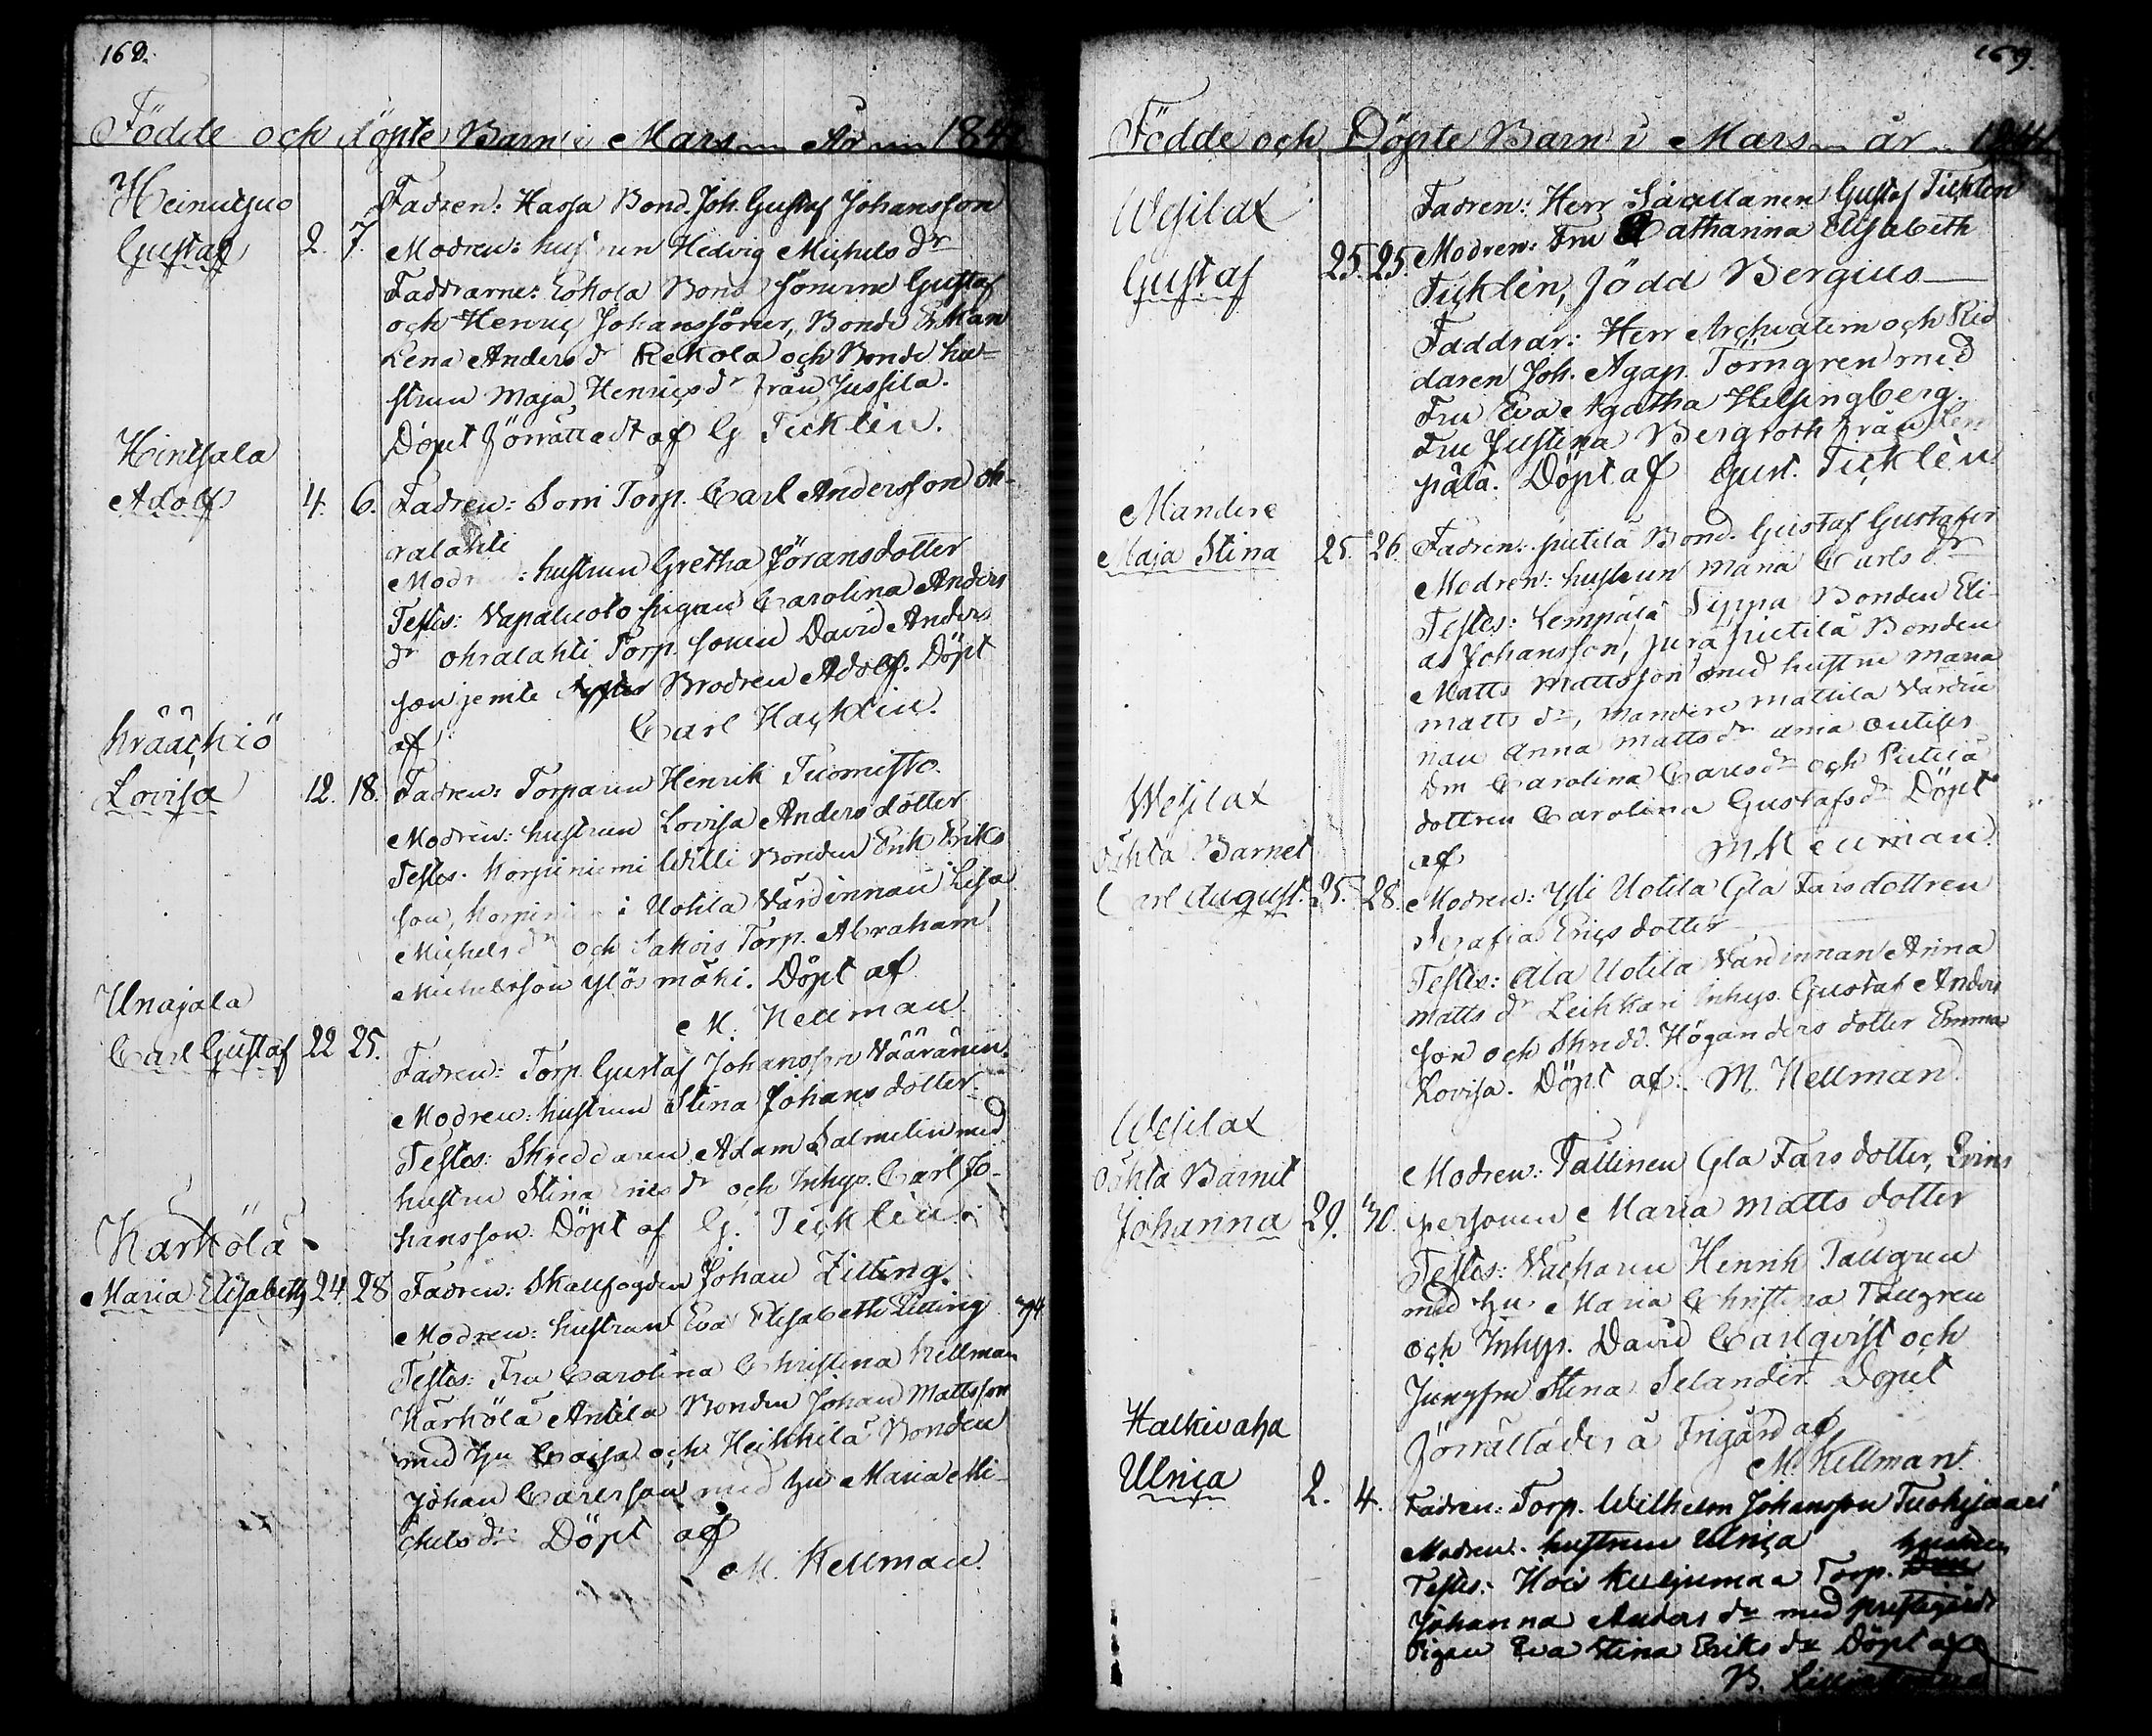 168.
Födde och döpte Barn i Mars År 184
Heinutsuo
Gustaf 2. 7.
Fadren: Hasja Bond. Joh. Gustaf Johansson
Modren: hustrun Hedvig Michels dr
Faddrarne: Eskola Bond sönerne Gustaf
och Henriç Johanssöner, Bonde Enkan
Lena Anders dr Rekola och Bonde hu-
strun Maja Henriçsdr från Jussila.
Döpt förrättadt af G Ticklén.
Hintsala
Adolf 4. 6.
Fadren: Torp. Carl Andersson oh-
ralahti
Modren: hustrun Gretha Jöransdotter
Testes: Vapaluoto pigan Carolina Anders
dr ohralahti Torp. sonen David Anders
son jemte Brodren Adolf. Döpt
af Carl Hacklin.
Krääckiö
Lovisa 12. 18.
Fadren: Torparen Henrik Tuomisto.
Modren: hustrun Lovisa Anders dotter
Testes. Korpiniemi Willi Bonden Erik Eriks
son, Uotila Värdinnan Lisa
Michels dr och Torp. Abraham
Michelsson Döpt af
M. Hellman
Unajala
Carl Gustaf 22 25.
Fadren: Torp. Gustaf Johansson Vääränen.
Modren: hustrun Stina Johans dotter
Testes: Skreddaren Adam Salmelin med
hustru Stina dr och Inhys. Carl Jo-
hansson. Döpt af G. Ticklén.
Kärkölä
Maria Elisabeth 24. 28
Fadren: Skallfogden Johan Zitting.
Modren: hustrun Eva Elisabeth Zitting
Testes: Fru Carolina Christina Hellman
Kärkölä Antila Bonden Johan Mattsson
med hu Caisa och Heikkilä Bonden
Johan Carlsson med hu Maria Mi-
chels dr. Döpt af
M. Hellman.
169.
Födde och Döpte Barn i Mars år 1841
Wesilax
Gustaf 25. 25.
Fadren: Herr Sacellanen Gustaf Ticklén
Modren: Fru Catharina Elisabeth
Ticklén, född Bergius
Faddrar: Herr Archiatern och Rid
daren Joh. Agap. Törngren med
Fru Eva Agatha Helsingberg.
Fru Justina Bergroth från Lem
pälä. Döpt af Gust. Ticklén
Mandere
Maja Stina 25. 26.
Fadren: Pietilä Bond. Gustaf Gustafsr
Modren: hustrun Maria Carls dr
Testes: Lempälä Sippa Bonden Eli-
as Johansson, Pietilä Bonden
Matts Mattsson med hustru Maria
Matts dr, Mandere Mattila Värdin
nan Anna Mattsdr
Carolina Carlsdr och Pietilä
dottren Carolina Gustafsdr Döpt
af M. Hellman.
Wesilax
Oäkta Barnet
Carl August. 25. 28.
Modren: Yli Uotila Gla Farsdottren
Serafia Eriçsdotter
Testes: Ala Uotila Värdinnan Anna
Matts dr Leikkari Inhys. Gustaf Anders
son och Skredd. Höganders dotter Emma
Lovisa. Döpt af. M. Hellman.
Wesilax
Oäkta Barnet
Johanna 29. 30.
Modren: Tallinen Gla Fars dotter,
personen Maria Matts dotter
Testes: Henrik Tallgren
med hu. Maria Christina Tallgren
och Inhys. David Carlqvist och
Jungfru Stina Selander. Döpet
förrättades å af
M. Hellman.
Halkivaha
Ulriça 2. 4.
Fadren: Torp. Wilhelm Johansson Tuohisaari
Modren. hustrun Ulriça
Testes: Hois Kuljunmaa Torp. hustrun
Johanna Anders dr med
Pigan Eva Stina Eriks dr Döpt af
B.